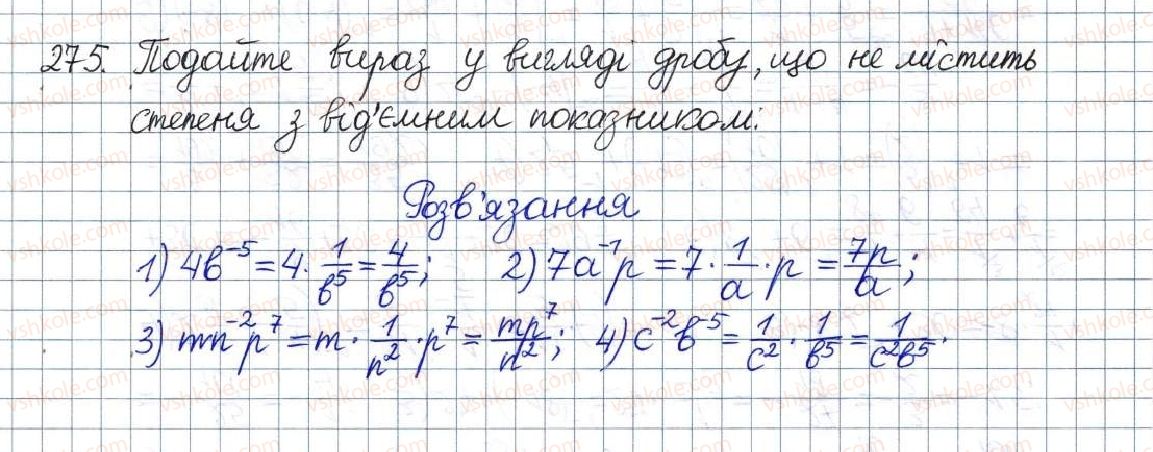 275. Подайте вираз у вигляді дробу, що не містить
степеня з від'ємним показником:
Розв'язання
1) 4b⁻⁵ = 4 · 1/b⁵ = 4/b⁵; 2) 7a⁻¹p = 7 · 1/a · p = 7p/a;
3) mn⁻²p⁷ = m · 1/n² · p⁷ = mp⁷/n²; 4) c⁻²b⁻⁵ = 1/c² · 1/b⁵ = 1/c²b⁵.